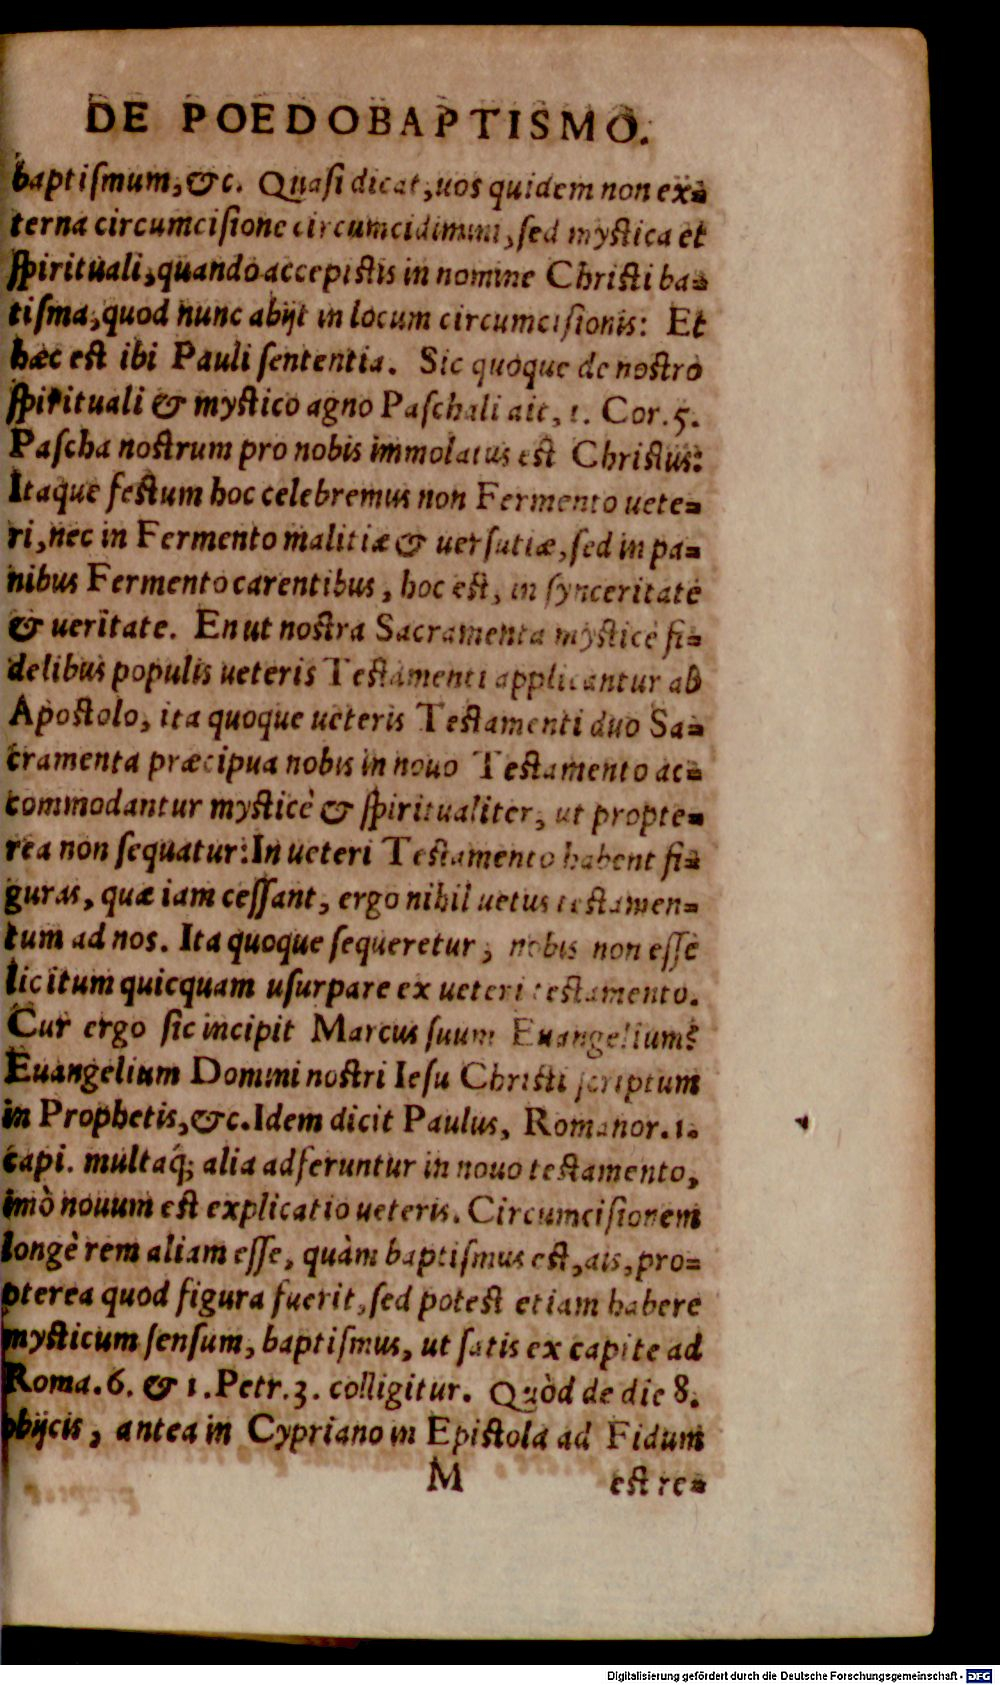 DE POEDOBAPTISMO.
baptiſmum,&c. Quaſi dicat,uos quidem non ex⸗
terna circumciſione circumcidimini,ſed myſtica et
ſpirituali,quando accepiſtis in nomine Chriſti ba⸗
tiſma,quod nunc abijt in locum circumciſionis: Et
hæc eſt ibi Pauli ſententia. Sic quoque de noſtro
ſpirituali & myſtico agno Paſchali ait, 1. Cor.5.
Paſcha noſtrum pro nobis immolatus eſt Chriſtus:
Itaque feſtum hoc celebremus non Fermento uete⸗
ri,nec in Fermento malitiæ & uerſutiæ,ſed in pa⸗
nibus Fermento carentibus, hoc eſt, in ſynceritate
& ueritate. En ut noſtra Sacramenta myſticè fi⸗
delibus populis ueteris Teſtamenti applicantur ab
Apoſtolo, ita quoque ueteris Teſtamenti duo Sa⸗
cramenta præcipua nobis in nouo Teſtamento ac⸗
commodantur myſticè & ſpiritualiter, ut propte⸗
rea non ſequatur:In ueteri Teſtamento habent fi⸗
guras, quæ iam ceſſant, ergo nihil uetus teſtamen⸗
tum ad nos. Ita quoque ſequeretur, nobis non eſſe
licitum quicquam uſurpare ex ueteri teſtamento.
Cur ergo ſic incipit Marcus ſuum Euangelium?
Euangelium Domini noſtri Ieſu Chriſti ſcriptum
in Prophetis,&c.Idem dicit Paulus, Romanor.1.
capi. multaq́; alia adferuntur in nouo teſtamento,
imò nouum eſt explicatio ueteris. Circumciſionem
longè rem aliam eſſe, quàm baptiſmus eſt,ais,pro⸗
pterea quod figura fuerit,ſed poteſt etiam habere
myſticum ſenſum, baptiſmus, ut ſatis ex capite ad
Roma.6. & 1.Petr.3. colligitur. Quòd de die 8.
obijcis, antea in Cypriano in Epiſtola ad Fidum
M
eſt re⸗
Digitalisierung gefördert durch die Deutsche Forschungsgemeinschaft - DFG